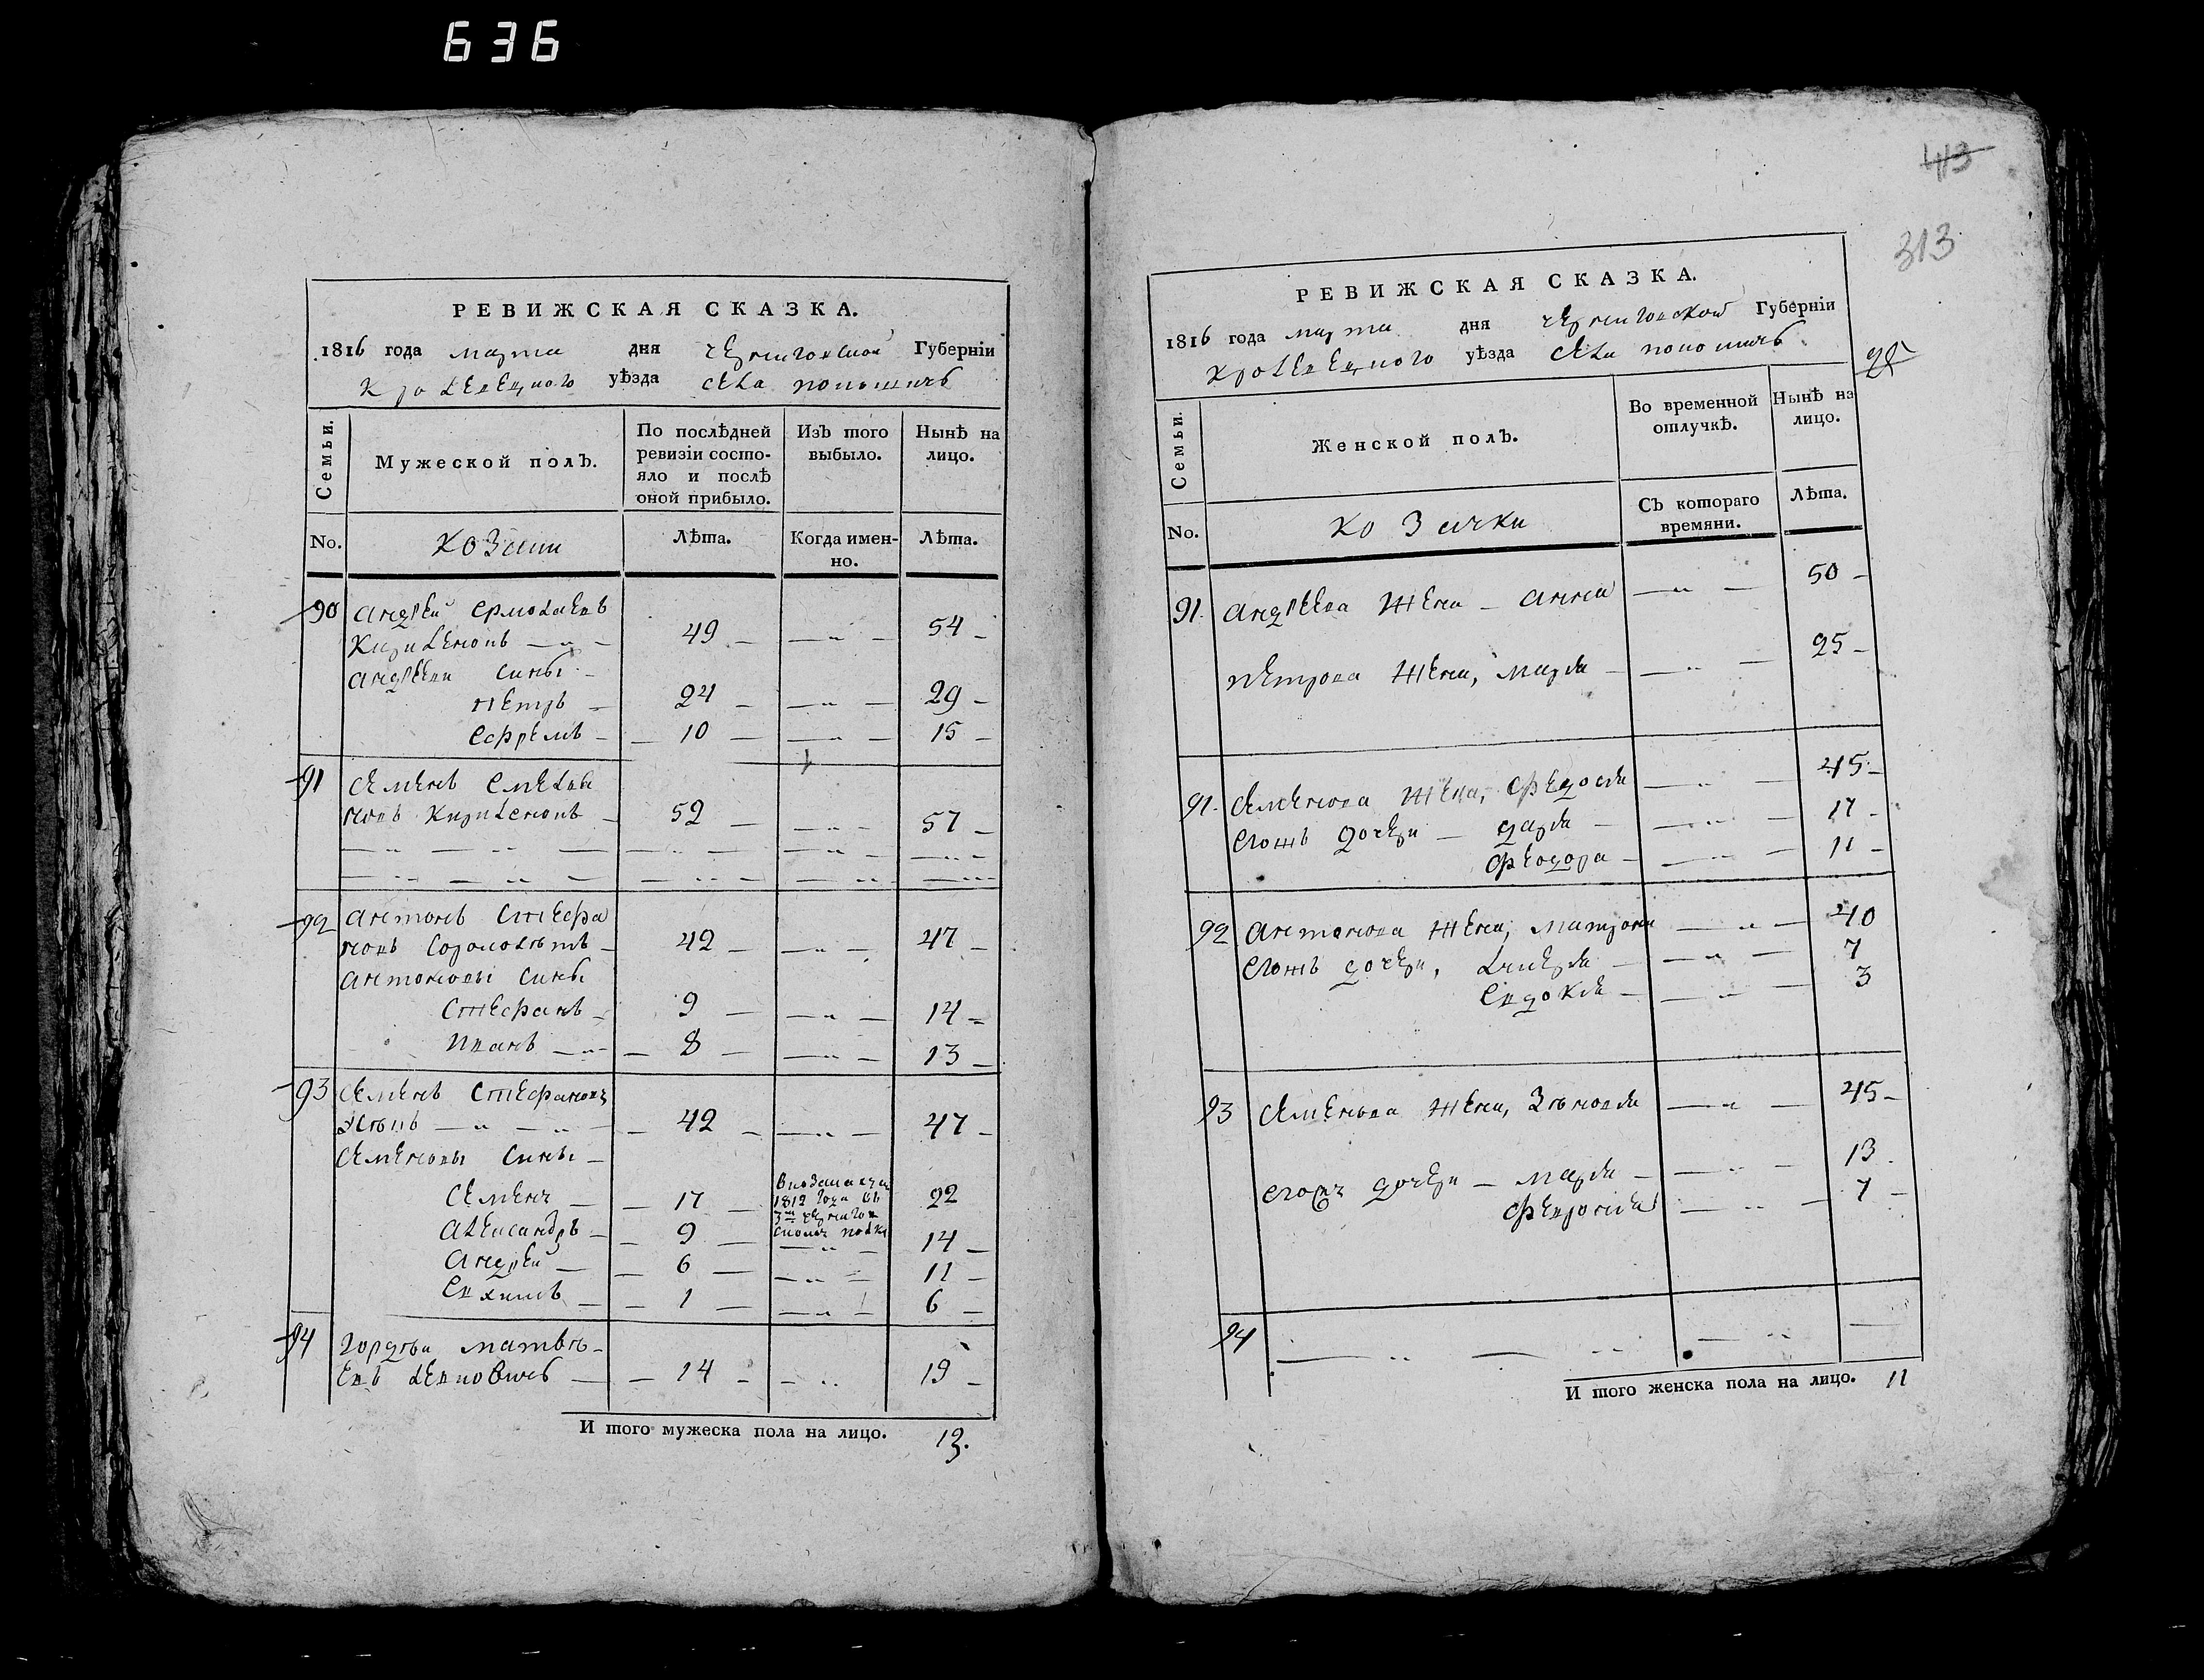 636
РЕВИЖСКАЯ СКАЗКА.
1816 года марта дня черниговской Губерніи
кролевецкого уѣзда села попошичь
Семьи.
Мужеской полъ.
По послѣдней ревизіи состояло и послѣ оной прибыло.
Изъ того выбыло.
Нынѣ на лицо.
No. козаки Лѣта. Когда именно. Лѣта.
90 андрей Ермолаевъ
Кириленовъ 49 54
андреевы сины
петръ 24 29
Ефремъ 10 15
91 семенъ Емелья
новъ Кириленовъ 52 57
92 антонъ Стефа
новъ сороколетъ 42 47
антоновы сины
Стефанъ 9 14
иванъ 8 13
93 семенъ Стефановъ
42 47
семеновы сины
семенъ 17 в козаках 1812 года въ 3м чернигов ском полку 22
александръ 9 14
андрей 6 11
Евхимъ 1 6
94 гордѣй матвѣ
евъ 14 19
И того мужеска пола на лицо. 13.
413
313
РЕВИЖСКАЯ СКАЗКА.
1816 года марта дня черниговской Губерніи
кролевецкого уѣзда села попошичь
Семьи.
Женской полъ.
Во временной отлучкѣ.
Нынѣ на лицо.
No. козачки Съ котораго времяни. Лѣта.
91. андреева жена анна 50
петрова жена, марья 25
91. семенова жена, Федосья 45
Егожъ дочери дарья 17
Феодора 11
92 антонова жена, матрона 40
Егожъ дочери, 7
Евдокія 3
93 семенова жена, Зѣновья 45
Егожъ дочери марья 13
Февронія 7
94
И того женска пола на лицо. 11